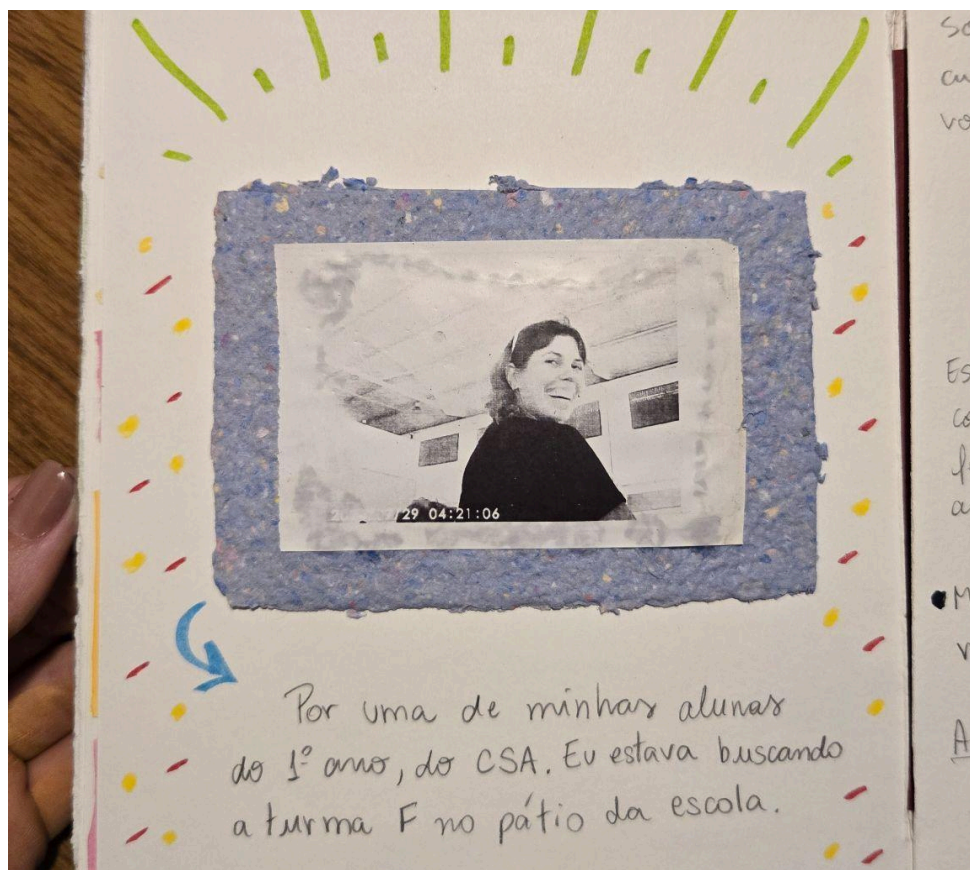 29 04:21:06
Por uma de minhas alunas
do 1º ano, do CSA. Eu estava buscando
a turma F no pátio da escola.